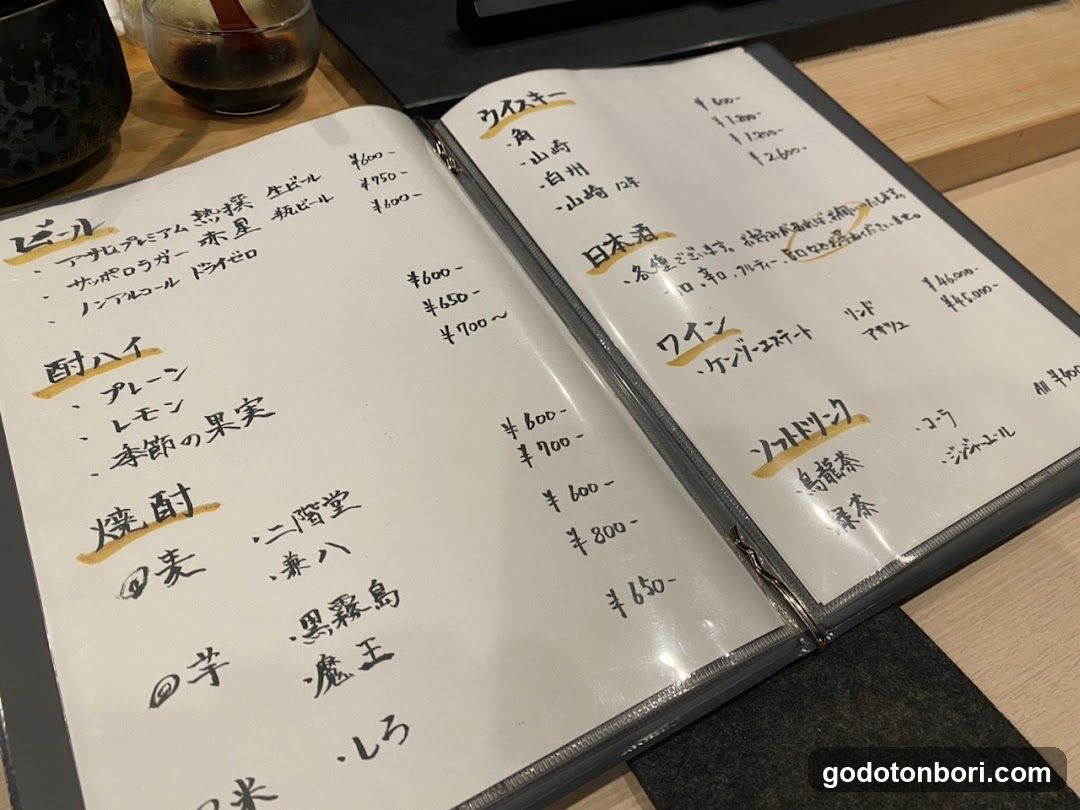 ビール
・アサヒプレミアム熟撰 生ビール ¥600-
・サッポロラガー 赤星 瓶ビール ¥750-
・ノンアルコール ドライゼロ ¥600-
酎ハイ
・プレーン ¥600-
・レモン ¥650-
・季節の果実 ¥700～
焼酎
麦 ・二階堂 ¥600-
・兼八 ¥700-
芋 ・黒霧島 ¥600-
・魔王 ¥800-
米 ・しろ ¥650-
ウイスキー
・角 ¥600-
・山崎 ¥1,200-
・白州 ¥1,200-
・山崎12年 ¥2,600-
日本酒
・各種ございます。お好みがあれば、お伺いいたします。
辛口、フルーティー
ワイン
・ケンゾーエステート リンド ¥46,000-
アサツユ ¥45,000-
ソフトドリンク All ¥600
・烏龍茶 ・コーラ
・緑茶 ・ジンジャエール
godotonbori.com